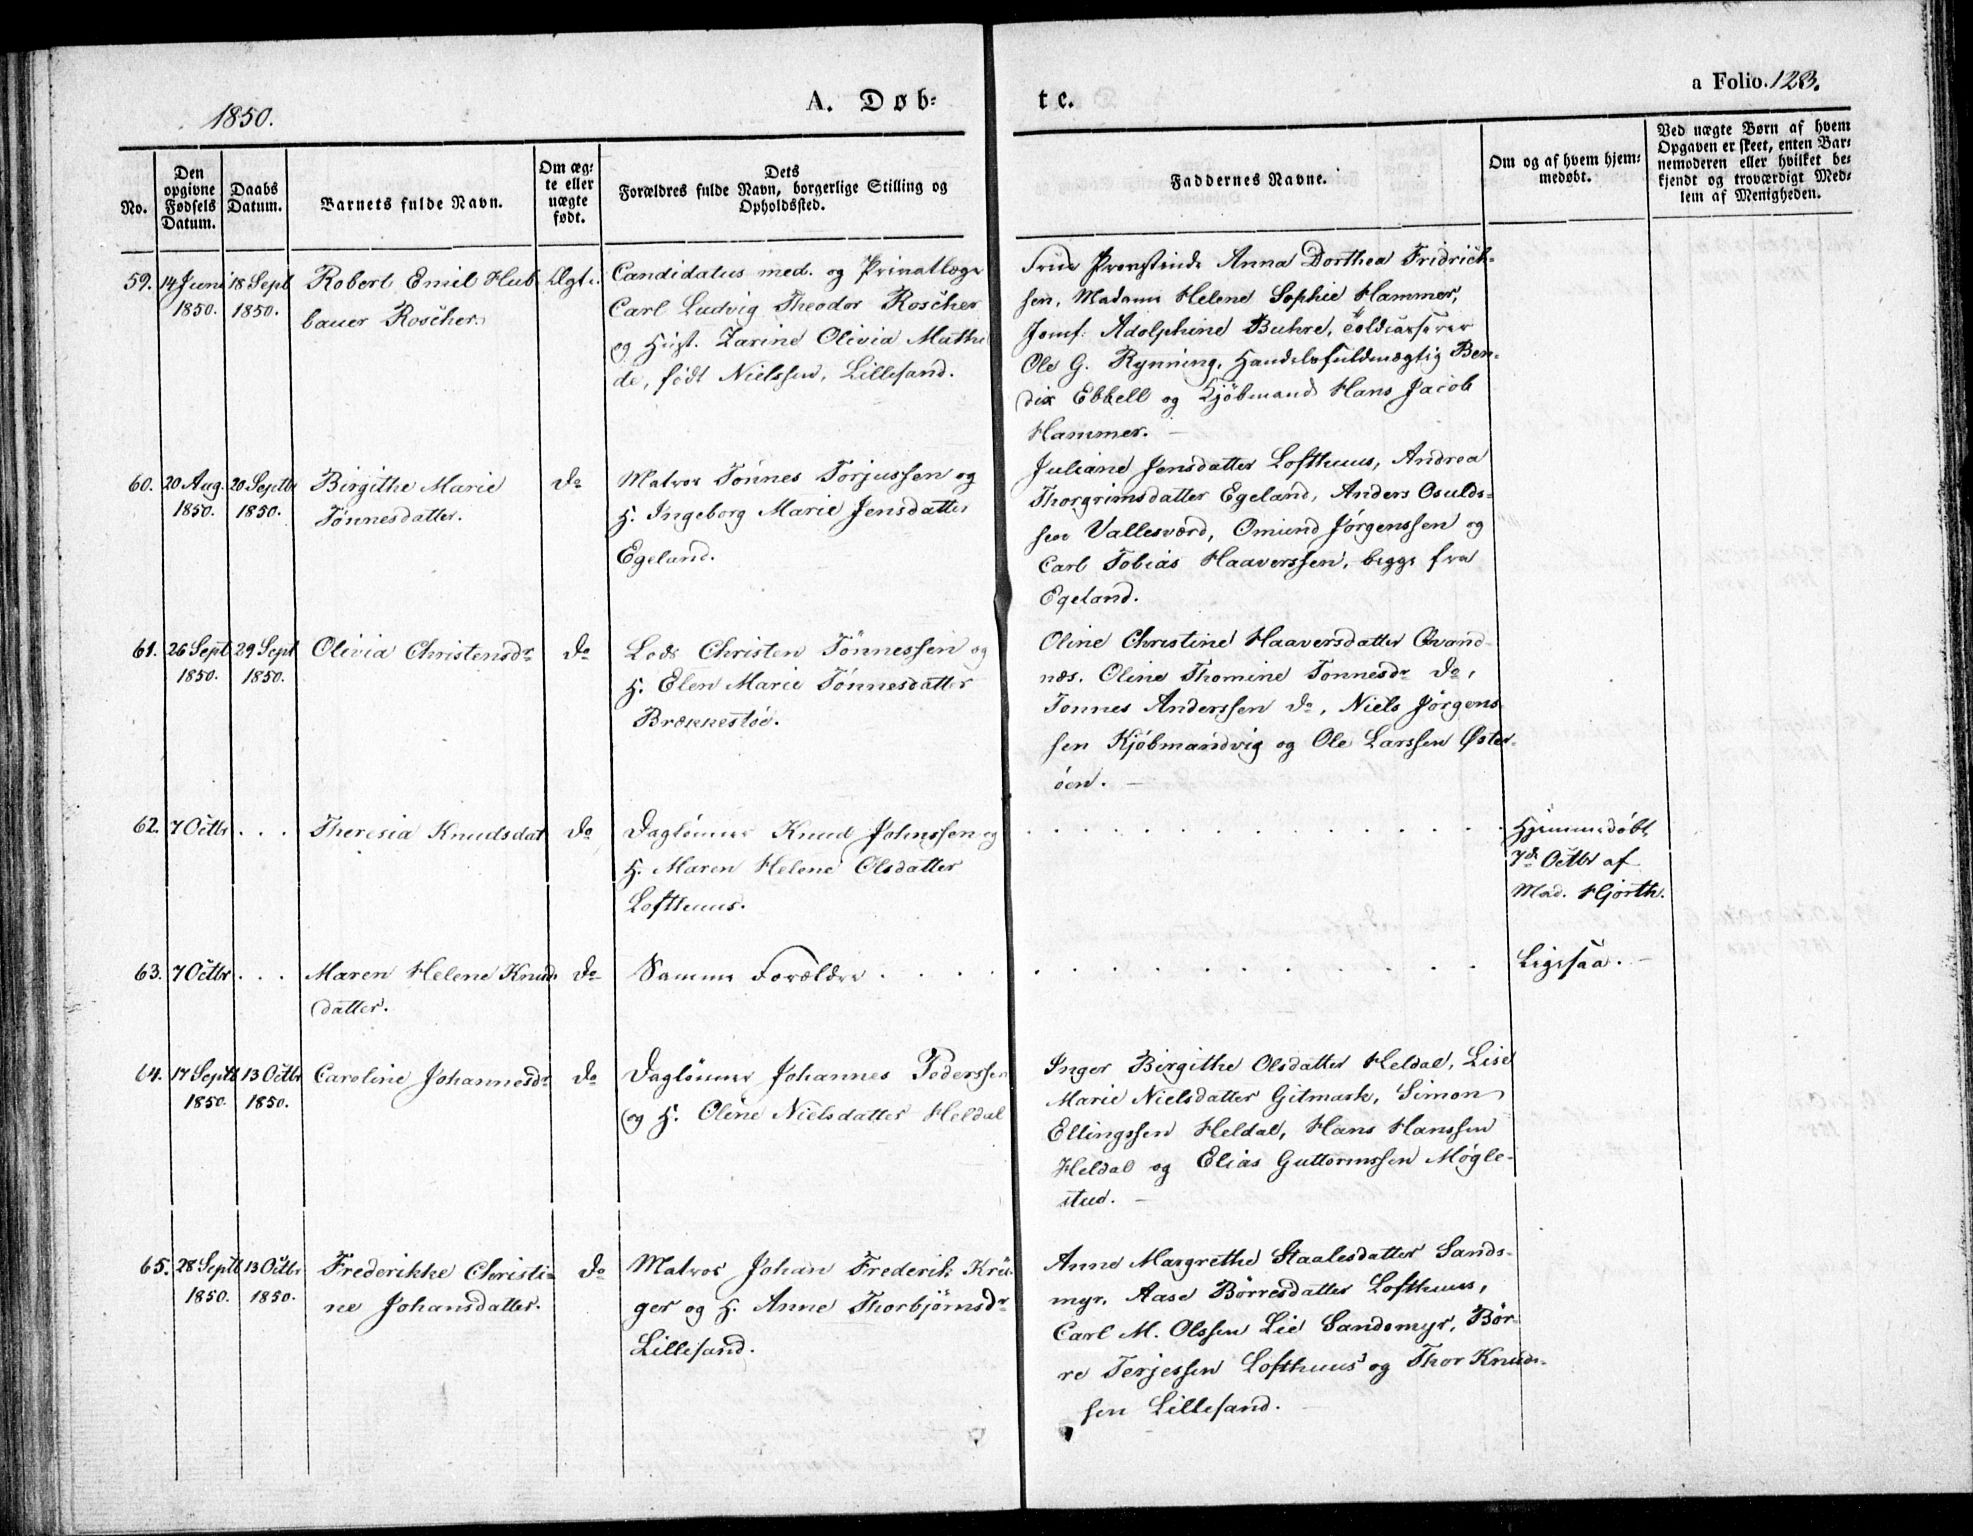 1850.
A. Døb-
te.
a Folio. 123.
No.
Den opgivne Fødsels Datum.
Daabs Datum.
Barnets fulde Navn.
Om æg-
te eller
uægte
født.
Dets
Forældres fulde Navn, borgerlige Stilling og
Opholdssted.
Faddernes Navne.
Om og af hvem hjem-
medøbt.
Ved uægte Børn af hvem
Opgaven er skeet, enten Bar-
nemoderen eller hvilket be-
kjendt og troværdigt Med-
lem af Menigheden.
59.
14 Juni
1850.
18 Sept
1850.
Robert Emil Hub
bauer Roscher.
Ægte.
Candidatus med. og Privatlæge
Carl Ludvig Theodor Roscher
og Hust. Zarine Olivia Mathil
de, født Nielssen, Lillesand.
Frue Provstinde Anna Dorthea Fridrick-
sen, Madame Helene Sophie Hammer,
Jomf. Adolphine Buhre, Toldcasserer
Ole G. Rynning, Handelsfuldmægtig Ben-
dix Ebbell og Kjøbmand Hans Jacob
Hammer. —
60.
20 Aug.
1850.
20 Septbr
1850.
Birgithe Marie
Tønnesdatter.
do
Matros Tønnes Torjussen og
H. Ingeborg Marie Jensdatter
Egeland.
Juliane Jensdatter Lofthuus, Andrea
Thorgrimsdatter Egeland, Anders Osulds-
sen Vallesværd, Omund Jørgenssen og
Carl Tobias Haaverssen, begge fra
Egeland.
61.
26 Sept
1850.
29 Sept
1850.
Olivia Christensdr
do
Lods Christen Tønnessen og
H. Elen Marie Tønnesdatter
Brækkestøe.
Oline Christine Haaversdatter Qvand-
næs. Oline Thomine Tønnesdr do,
Tønnes Anderssen do, Niels Jørgens
sen Kjøbmandvig og Ole Larssen Øster-
øen. —
62.
7 Octbr
. . .
Theresia Knudsdat
do
Daglønner Knud Johnssen og
H. Maren Helene Olsdatter
Lofthuus.
Hjemmedøbt
7de Octbr af
Mad. Hjorth.
63.
7 Octbr
. . .
Maren Helene Knuds
datter.
do
Samme Forældre . . . .
Ligesaa. —
64.
17 Septb
1850.
13 Octbr
1850.
Caroline Johannesdr
do
Daglønner Johannes Pederssen
og H. Oline Nielsdatter Heldal
Inger Birgithe Olsdatter Heldal, Lise
Marie Nielsdatter Gitmark, Simon
Ellingssen Heldal, Hans Hanssen
Heldal og Elias Guttormssen Møgle-
stud. —
65.
28 Septb
1850.
13 Octbr
1850.
Frederikke Christi-
ne Johansdatter.
do
Matros Johan Frederik Krü-
ger og H. Anne Thorbjørnsdr
Lillesand.
Anne Margrethe Staalesdatter Sands-
myr, Aase Børresdatter Lofthuus,
Carl M. Olssen Lie Sandsmyr, Bør-
re Terjessen Lofthuus og Thor Knuds-
sen Lillesand.